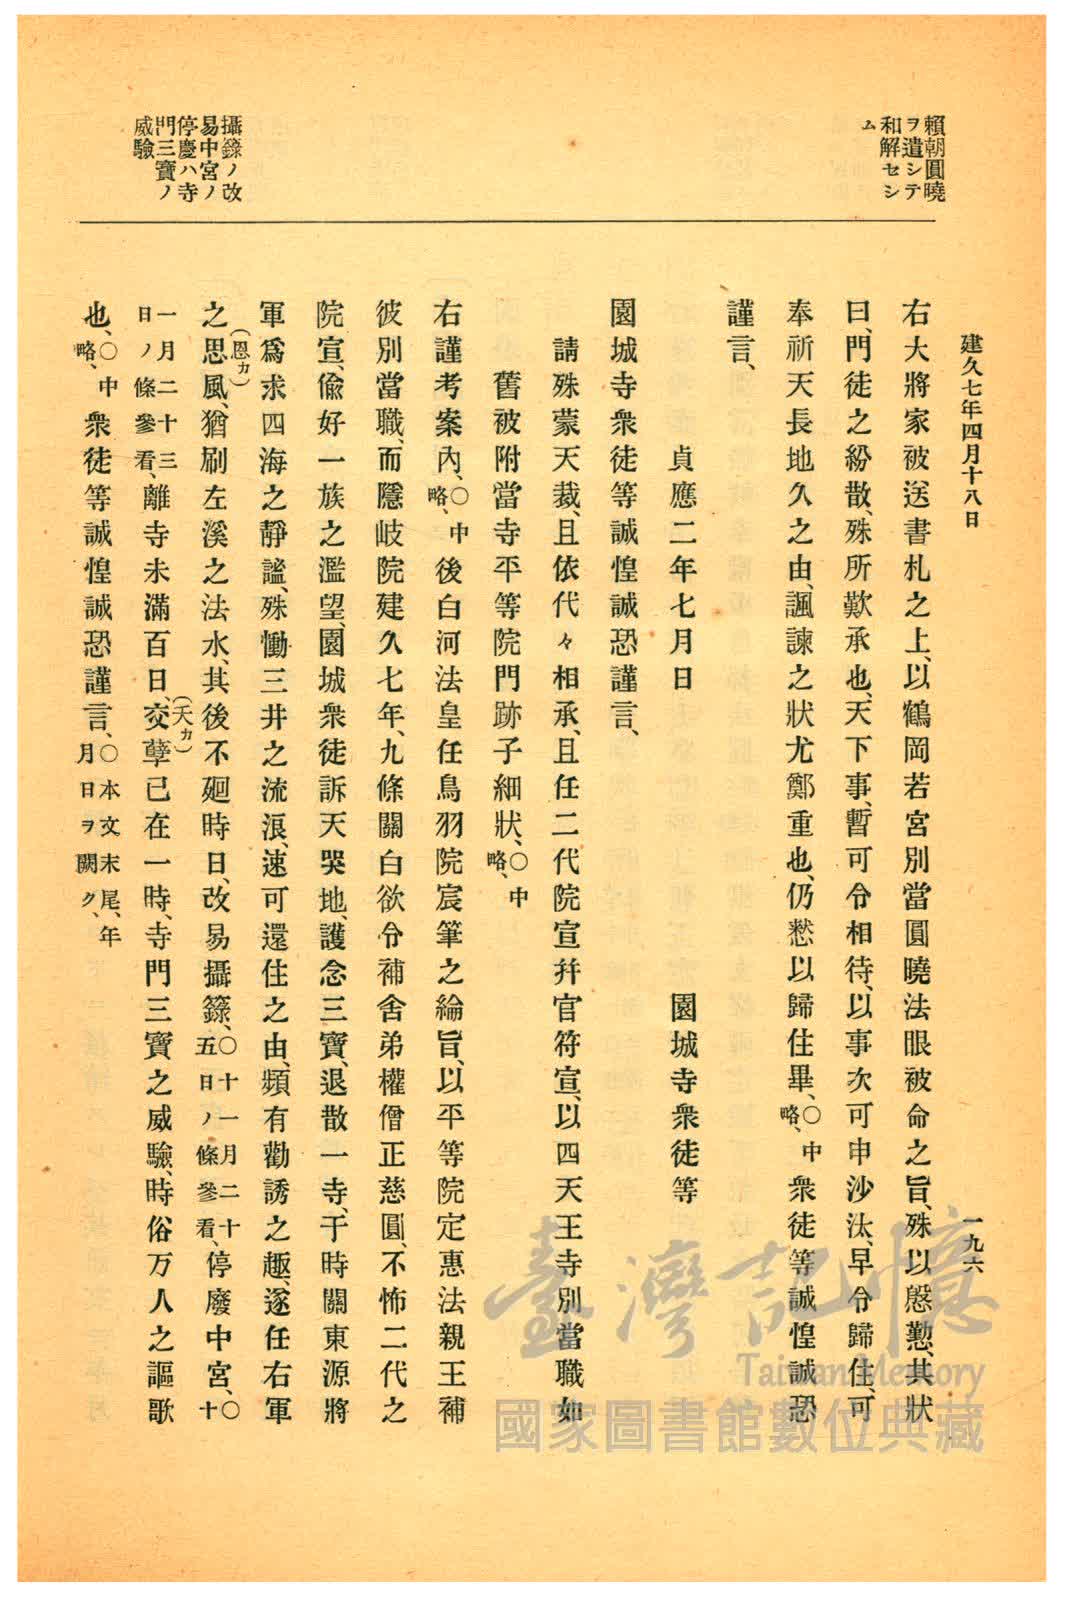 建久七年四月十八日
一九六
賴朝圓曉
ヲ遣シテ
和解セシ
ム
攝籙ノ改
易中宮ノ
停慶ハ寺
門三寶ノ
威驗
右大將家被送書札之上、以鶴岡若宮別當圓曉法眼被命之旨、殊以慇懃、其狀
曰、門徒之紛散、殊所歎承也、天下事、暫可令相待、以事次可申沙汰、早令歸住、可
奉祈天長地久之由、諷諫之狀尤鄭重也、仍憖以歸住畢、〇中略、衆徒等誠惶誠恐
謹言、
貞應二年七月日　園城寺衆徒等
園城寺衆徒等誠惶誠恐謹言、
請殊蒙天裁、且依代々相承、且任二代院宣幷官符宣、以四天王寺別當職如
舊被附當寺平等院門跡子細狀、〇中略、
右謹考案內、〇中略、後白河法皇任鳥羽院宸筆之綸旨、以平等院定惠法親王補
彼別當職、而隱岐院建久七年、九條關白欲令補舍弟權僧正慈圓、不怖二代之
院宣、儉好一族之濫望、園城衆徒訴天哭地、護念三寶、退散一寺、于時關東源將
軍爲求四海之靜謐、殊慟三井之流浪、速可還住之由、頻有勸誘之趣、逐任右軍
之思(恩カ)風、猶刷左溪之法水、其後不廻時日、改易攝籙、〇十一月二十五日ノ條參看、停廢中宮、〇十
一月二十三日ノ條參看、離寺未滿百日、交(天カ)孽已在一時、寺門三寶之威驗、時俗万人之謳歌
也、〇中略、衆徒等誠惶誠恐謹言、〇本文末尾、年月日ヲ闕ク、
臺灣記憶
Taiwan Memory
國家圖書館數位典藏